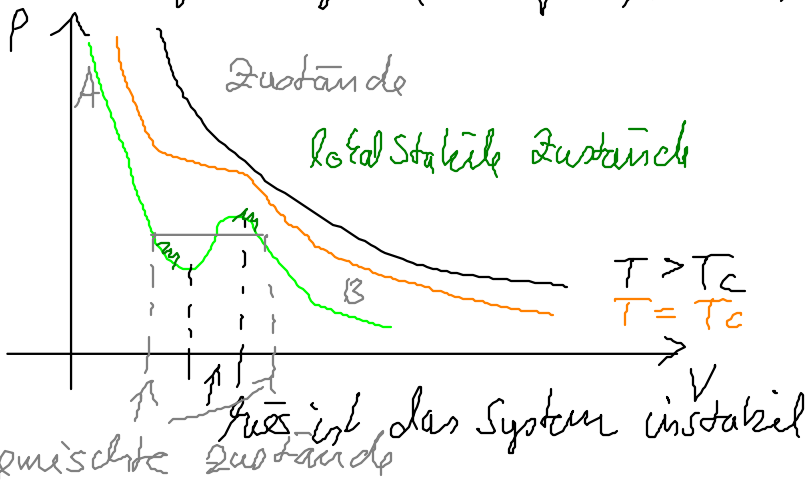 P
A
Zustände
lokal stabile Zustände
B
T > Tc
T = Tc
V
ist das System instabil
Zustände